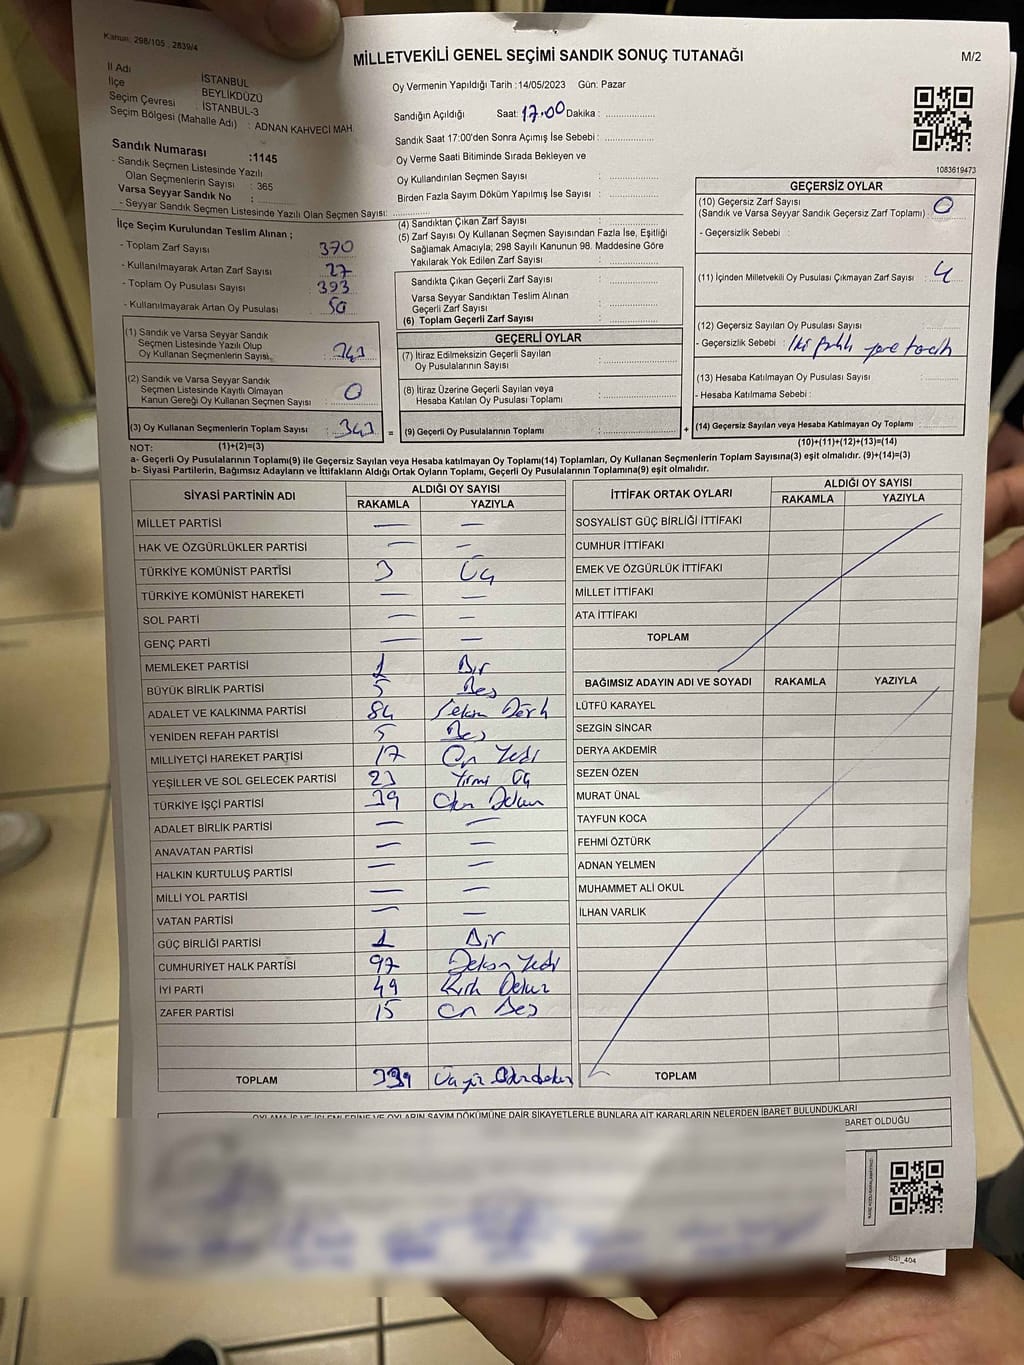 Kanun: 298/105 . 2839/4
MİLLETVEKİLİ GENEL SEÇİMİ SANDIK SONUÇ TUTANAĞI
M/2
İl Adı İSTANBUL
İlçe BEYLİKDÜZÜ
Seçim Çevresi : İSTANBUL-3
Seçim Bölgesi (Mahalle Adı) : ADNAN KAHVECİ MAH.
Sandık Numarası :1145
- Sandık Seçmen Listesinde Yazılı
Olan Seçmenlerin Sayısı : 365
Varsa Seyyar Sandık No :
- Seyyar Sandık Seçmen Listesinde Yazılı Olan Seçmen Sayısı: ..............
Oy Vermenin Yapıldığı Tarih :14/05/2023 Gün: Pazar
Sandığın Açıldığı Saat: 17.00 Dakika : ..............
Sandık Saat 17:00'den Sonra Açımış İse Sebebi : ..............
Oy Verme Saati Bitiminde Sırada Bekleyen ve
Oy Kullandırılan Seçmen Sayısı : ..............
Birden Fazla Sayım Döküm Yapılmış İse Sayısı : ..............
1083619473
İlçe Seçim Kurulundan Teslim Alınan ;
- Toplam Zarf Sayısı 370
- Kullanılmayarak Artan Zarf Sayısı : 27
- Toplam Oy Pusulası Sayısı : 393
- Kullanılmayarak Artan Oy Pusulası : 50
(1) Sandık ve Varsa Seyyar Sandık
Seçmen Listesinde Yazılı Olup
Oy Kullanan Seçmenlerin Sayısı : 343
(2) Sandık ve Varsa Seyyar Sandık
Seçmen Listesinde Kayıtlı Olmayan
Kanun Gereği Oy Kullanan Seçmen Sayısı : 0
(3) Oy Kullanan Seçmenlerin Toplam Sayısı : 343 =
(4) Sandıktan Çıkan Zarf Sayısı : ..............
(5) Zarf Sayısı Oy Kullanan Seçmen Sayısından Fazla İse, Eşitliği
Sağlamak Amacıyla; 298 Sayılı Kanunun 98. Maddesine Göre
Yakılarak Yok Edilen Zarf Sayısı : ..............
Sandıkta Çıkan Geçerli Zarf Sayısı : ..............
Varsa Seyyar Sandıktan Teslim Alınan
Geçerli Zarf Sayısı : ..............
(6) Toplam Geçerli Zarf Sayısı : ..............
GEÇERLİ OYLAR
(7) İtiraz Edilmeksizin Geçerli Sayılan
Oy Pusulalarının Sayısı : ..............
(8) İtiraz Üzerine Geçerli Sayılan veya
Hesaba Katılan Oy Pusulası Toplamı : ..............
(9) Geçerli Oy Pusulalarının Toplamı : .............. +
GEÇERSİZ OYLAR
(10) Geçersiz Zarf Sayısı
(Sandık ve Varsa Seyyar Sandık Geçersiz Zarf Toplamı) : 0
- Geçersizlik Sebebi :
(11) İçinden Milletvekili Oy Pusulası Çıkmayan Zarf Sayısı : 4
(12) Geçersiz Sayılan Oy Pusulası Sayısı : ..............
- Geçersizlik Sebebi : İki farklı yere
(13) Hesaba Katılmayan Oy Pusulası Sayısı : ..............
- Hesaba Katılmama Sebebi :
(14) Geçersiz Sayılan veya Hesaba Katılmayan Oy Toplamı : ..............
(10)+(11)+(12)+(13)=(14)
NOT: (1)+(2)=(3)
a- Geçerli Oy Pusulalarının Toplamı(9) ile Geçersiz Sayılan veya Hesaba katılmayan Oy Toplamı(14) Toplamları, Oy Kullanan Seçmenlerin Toplam Sayısına(3) eşit olmalıdır. (9)+(14)=(3)
b- Siyasi Partilerin, Bağımsız Adayların ve İttifakların Aldığı Ortak Oyların Toplamı, Geçerli Oy Pusulalarının Toplamına(9) eşit olmalıdır.
SİYASİ PARTİNİN ADI ALDIĞI OY SAYISI
RAKAMLA YAZIYLA
MİLLET PARTİSİ — —
HAK VE ÖZGÜRLÜKLER PARTİSİ — —
TÜRKİYE KOMÜNİST PARTİSİ 3 Üç
TÜRKİYE KOMÜNİST HAREKETİ — —
SOL PARTİ — —
GENÇ PARTİ — —
MEMLEKET PARTİSİ 1 Bir
BÜYÜK BİRLİK PARTİSİ 5 Beş
ADALET VE KALKINMA PARTİSİ 84 Seksen Dört
YENİDEN REFAH PARTİSİ 5 Beş
MİLLİYETÇİ HAREKET PARTİSİ 17 On Yedi
YEŞİLLER VE SOL GELECEK PARTİSİ 23 Yirmi Üç
TÜRKİYE İŞÇİ PARTİSİ 39 Otuz Dokuz
ADALET BİRLİK PARTİSİ — —
ANAVATAN PARTİSİ — —
HALKIN KURTULUŞ PARTİSİ — —
MİLLİ YOL PARTİSİ — —
VATAN PARTİSİ — —
GÜÇ BİRLİĞİ PARTİSİ 1 Bir
CUMHURİYET HALK PARTİSİ 97 Doksan Yedi
İYİ PARTİ 49 Kırk Dokuz
ZAFER PARTİSİ 15 On Beş
TOPLAM 339 Üçyüz Otuzdokuz
İTTİFAK ORTAK OYLARI ALDIĞI OY SAYISI
RAKAMLA YAZIYLA
SOSYALİST GÜÇ BİRLİĞİ İTTİFAKI
CUMHUR İTTİFAKI
EMEK VE ÖZGÜRLÜK İTTİFAKI
MİLLET İTTİFAKI
ATA İTTİFAKI
TOPLAM
BAĞIMSIZ ADAYIN ADI VE SOYADI RAKAMLA YAZIYLA
LÜTFÜ KARAYEL
SEZGİN SİNCAR
DERYA AKDEMİR
SEZEN ÖZEN
MURAT ÜNAL
TAYFUN KOCA
FEHMİ ÖZTÜRK
ADNAN YELMEN
MUHAMMET ALİ OKUL
İLHAN VARLIK
TOPLAM
OYLAMA İŞ VE İŞLEMLERİNE VE OYLARIN SAYIM DÖKÜMÜNE DAİR ŞİKAYETLERLE BUNLARA AİT KARARLARIN NELERDEN İBARET BULUNDUKLARI
BARET OLDUĞU
SS1_404